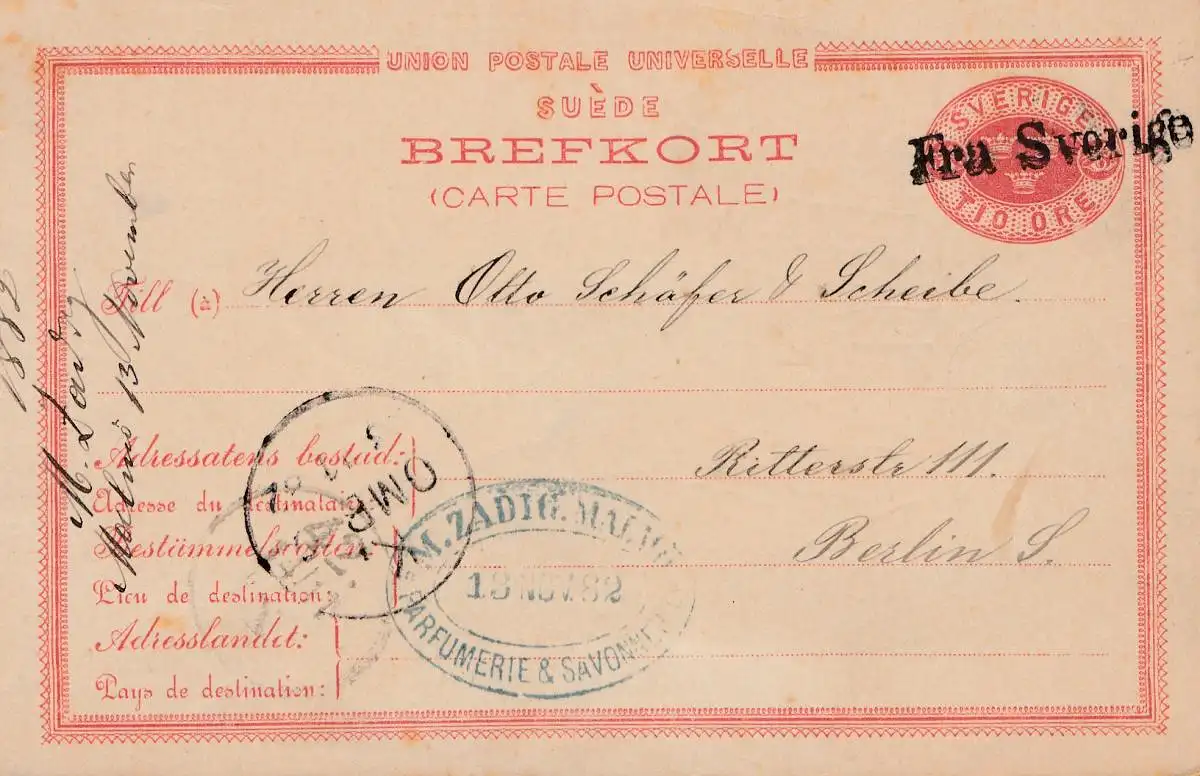 UNION POSTALE UNIVERSELLE
SUÈDE
BREFKORT
(CARTE POSTALE)
SVERIGE
TIO ÖRE
Fra Sverige
Till (à) Herren Otto Schäfer & Scheibe.
Adressatens bostad: Ritterstr 111.
Adresse du destinataire
Bestämmelseorten: Berlin S.
Lieu de destination:
Adresslandet:
Pays de destination:
M. ZADIG. MALMÖ
13 NOV. 82
PARFUMERIE & SAVONNERIE
OMB
Malmö 13 November
M. Zadig
1882